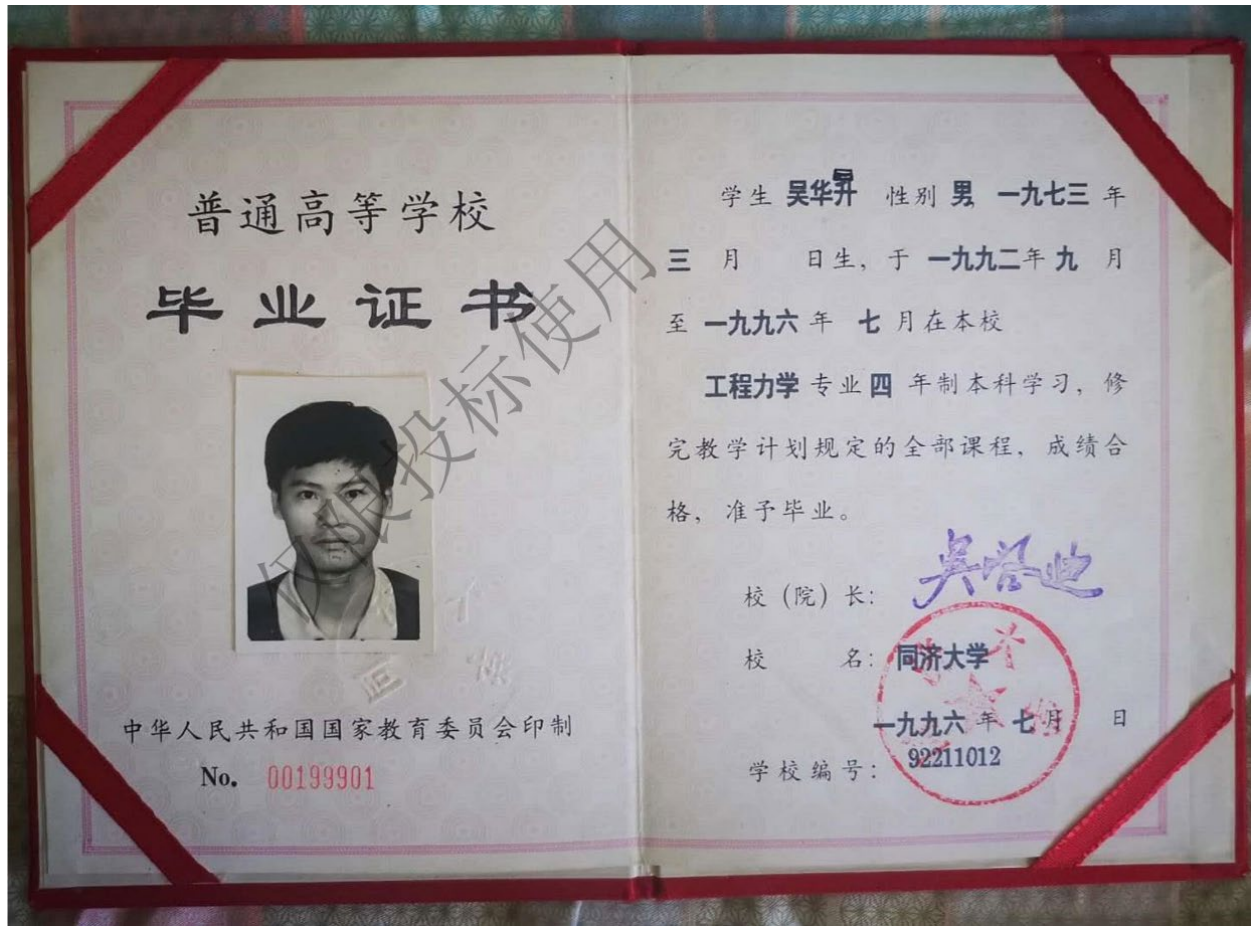 普通高等学校
毕业证书
中华人民共和国国家教育委员会印制
No. 00199901
学生 吴华昇 性别 男, 一九七三 年
三 月 日生, 于 一九九二 年 九 月
至 一九九六 年 七 月在本校
工程力学 专业 四 年制本科学习, 修
完教学计划规定的全部课程, 成绩合
格, 准予毕业。
校（院）长: 吴启迪
校 名: 同济大学
一九九六 年 七 月 日
学校编号: 92211012
投标使用